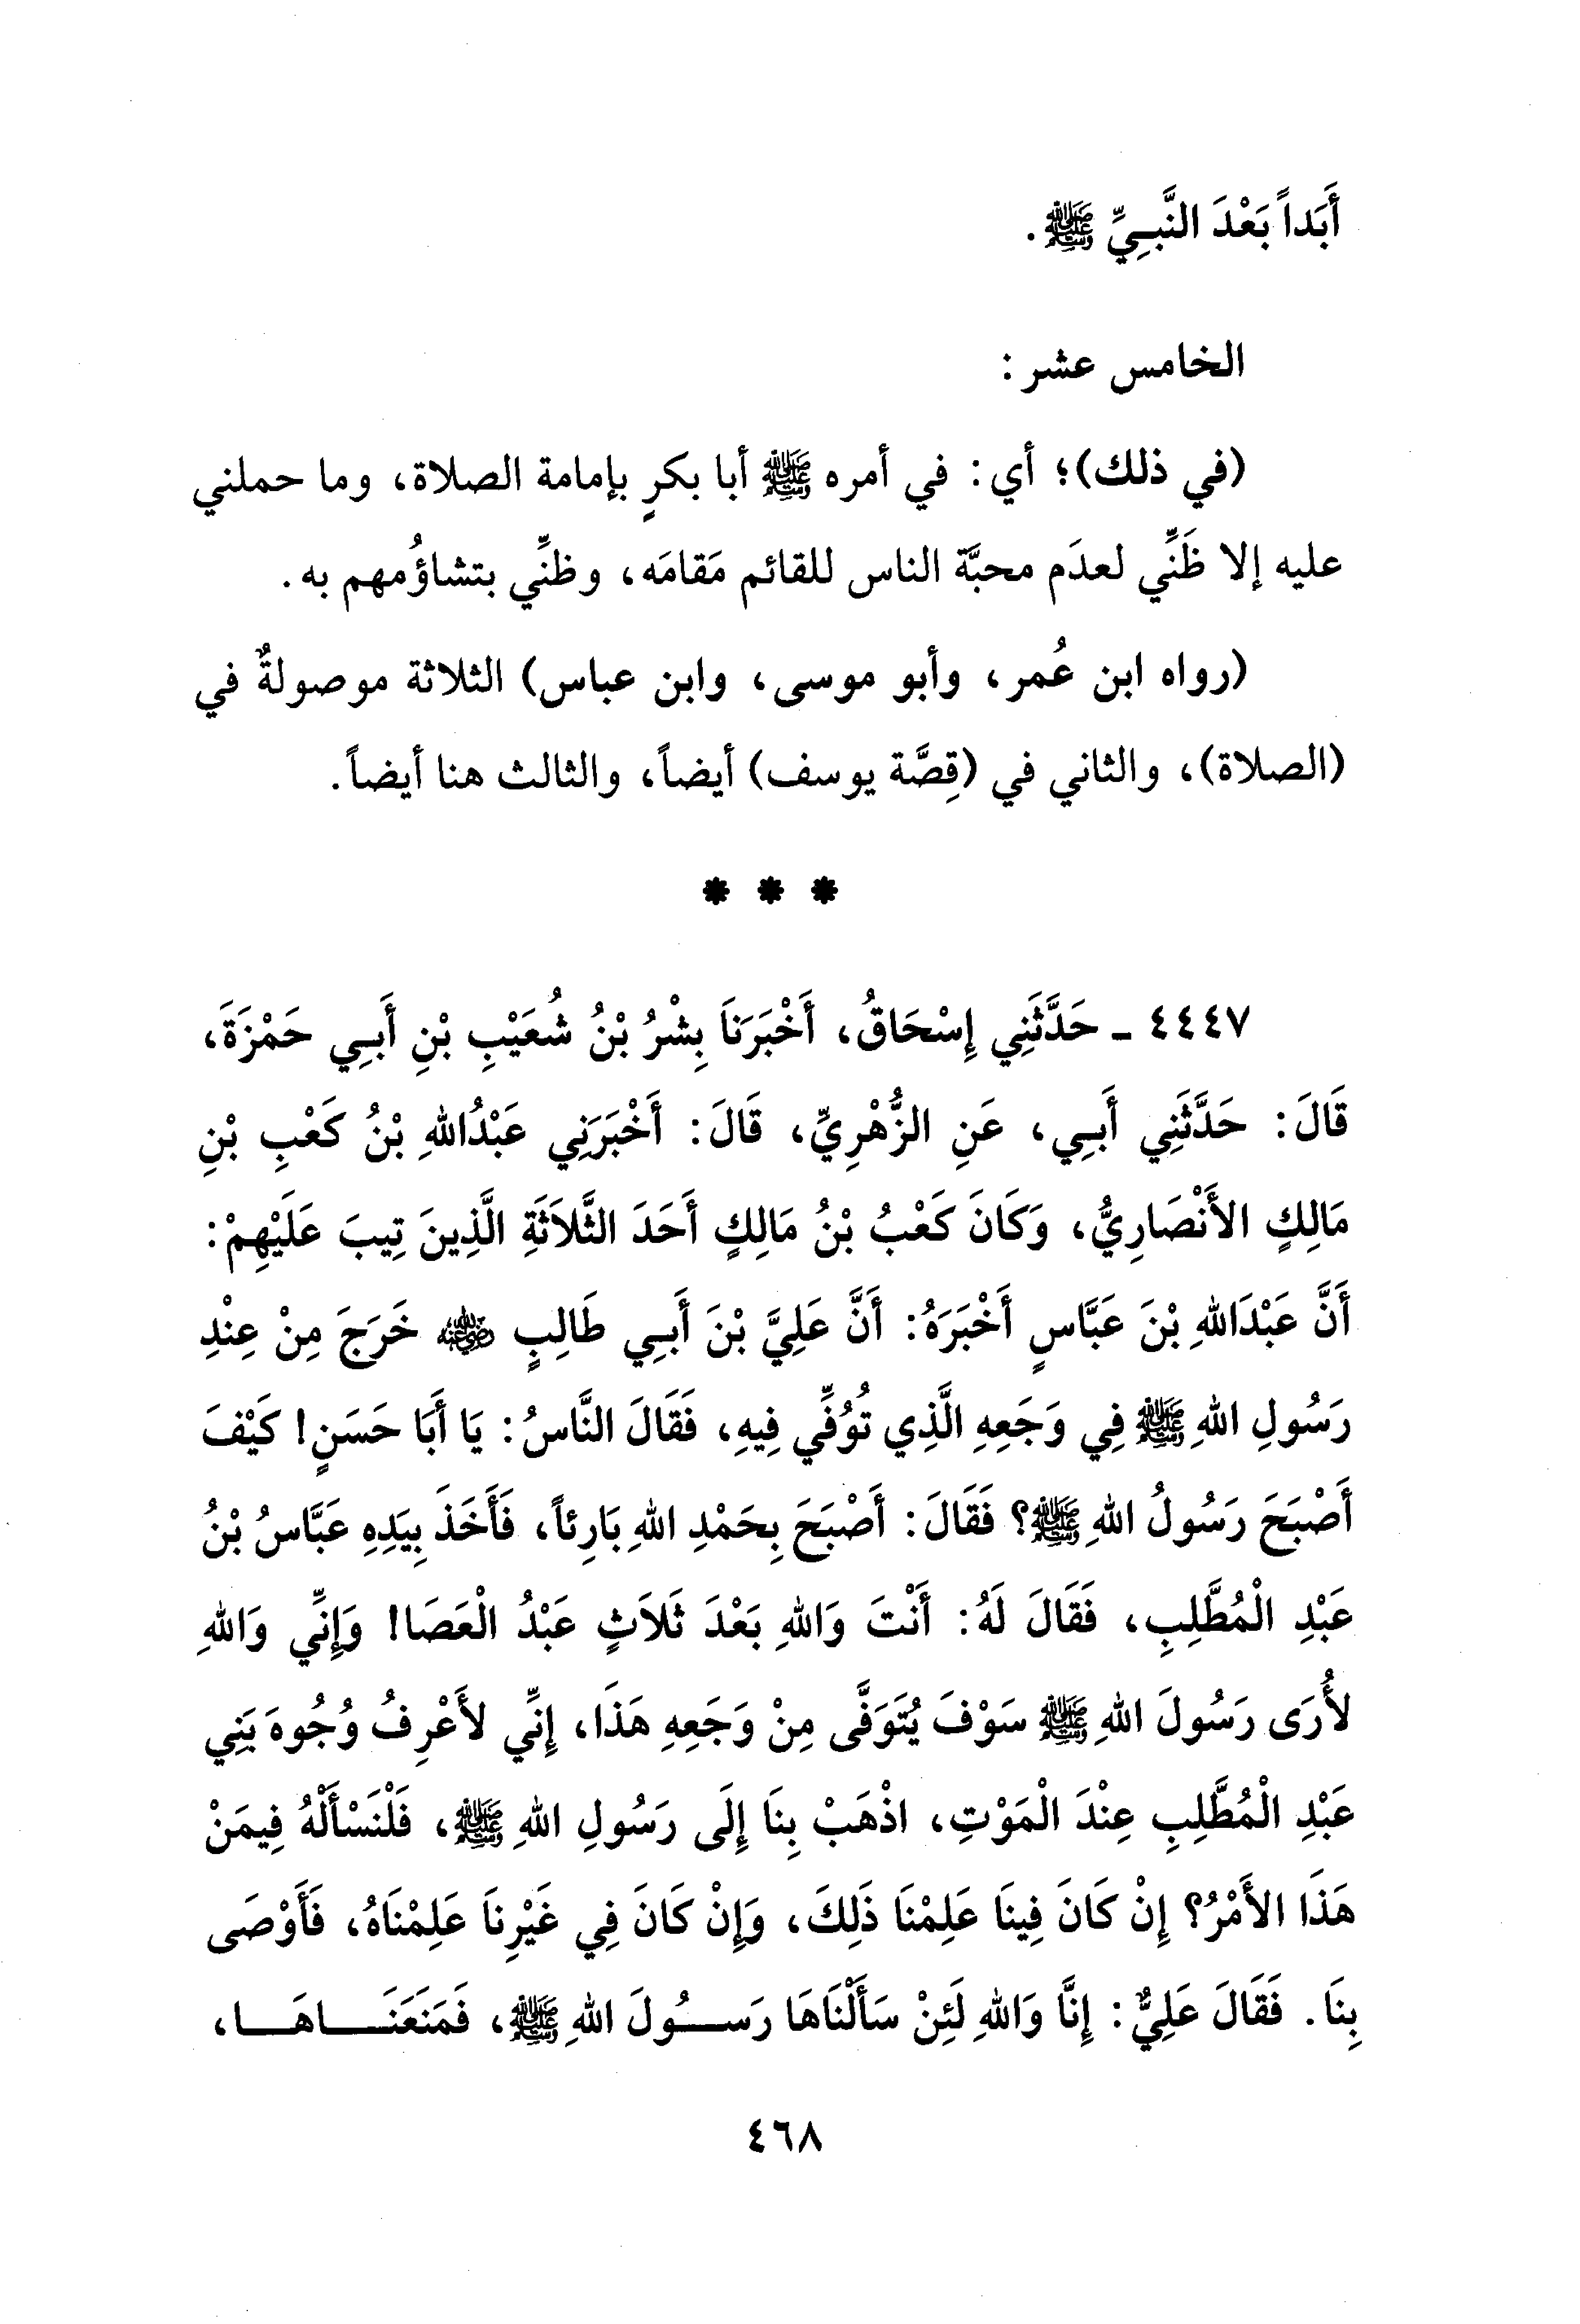 أَبَداً بَعْدَ النَّبِيِّ ﷺ.
الخامس عشر:
(في ذلك)؛ أي: في أمره ﷺ أبا بكرٍ بإمامة الصلاة، وما حملني
عليه إلا ظَنِّي لعدَم محبَّة الناس للقائم مَقامَه، وظنِّي بتشاؤُمهم به.
(رواه ابن عُمر، وأبو موسى، وابن عباس) الثلاثة موصولةٌ في
(الصلاة)، والثاني في (قِصَّة يوسف) أيضاً، والثالث هنا أيضاً.
* * *
٤٤٤٧ - حَدَّثَنِي إِسْحَاقُ، أَخْبَرَنَا بِشْرُ بْنُ شُعَيْبِ بْنِ أَبِي حَمْزَةَ،
قَالَ: حَدَّثَنِي أَبِي، عَنِ الزُّهْرِيِّ، قَالَ: أَخْبَرَنِي عَبْدُاللهِ بْنُ كَعْبِ بْنِ
مَالِكٍ الأَنْصَارِيُّ، وَكَانَ كَعْبُ بْنُ مَالِكٍ أَحَدَ الثَّلاَثَةِ الَّذِينَ تِيبَ عَلَيْهِمْ:
أَنَّ عَبْدَاللهِ بْنَ عَبَّاسٍ أَخْبَرَهُ: أَنَّ عَلِيَّ بْنَ أَبِي طَالِبٍ ﵁ خَرَجَ مِنْ عِنْدِ
رَسُولِ اللهِ ﷺ فِي وَجَعِهِ الَّذِي تُوُفِّي فِيهِ، فَقَالَ النَّاسُ: يَا أَبَا حَسَنٍ! كَيْفَ
أَصْبَحَ رَسُولُ اللهِ ﷺ؟ فَقَالَ: أَصْبَحَ بِحَمْدِ اللهِ بَارِئاً، فَأَخَذَ بِيَدِهِ عَبَّاسُ بْنُ
عَبْدِ الْمُطَّلِبِ، فَقَالَ لَهُ: أَنْتَ وَاللهِ بَعْدَ ثَلاَثٍ عَبْدُ الْعَصَا! وَإِنِّي وَاللهِ
لأُرَى رَسُولَ اللهِ ﷺ سَوْفَ يُتَوَفَّى مِنْ وَجَعِهِ هَذَا، إِنِّي لأَعْرِفُ وُجُوهَ بَنِي
عَبْدِ الْمُطَّلِبِ عِنْدَ الْمَوْتِ، اذْهَبْ بِنَا إِلَى رَسُولِ اللهِ ﷺ، فَلْنَسْأَلْهُ فِيمَنْ
هَذَا الأَمْرُ؟ إِنْ كَانَ فِينَا عَلِمْنَا ذَلِكَ، وَإِنْ كَانَ فِي غَيْرِنَا عَلِمْنَاهُ، فَأَوْصَى
بِنَا. فَقَالَ عَلِيٌّ: إِنَّا وَاللهِ لَئِنْ سَأَلْنَاهَا رَسُولَ اللهِ ﷺ، فَمَنَعَنَاهَا،
٤٦٨